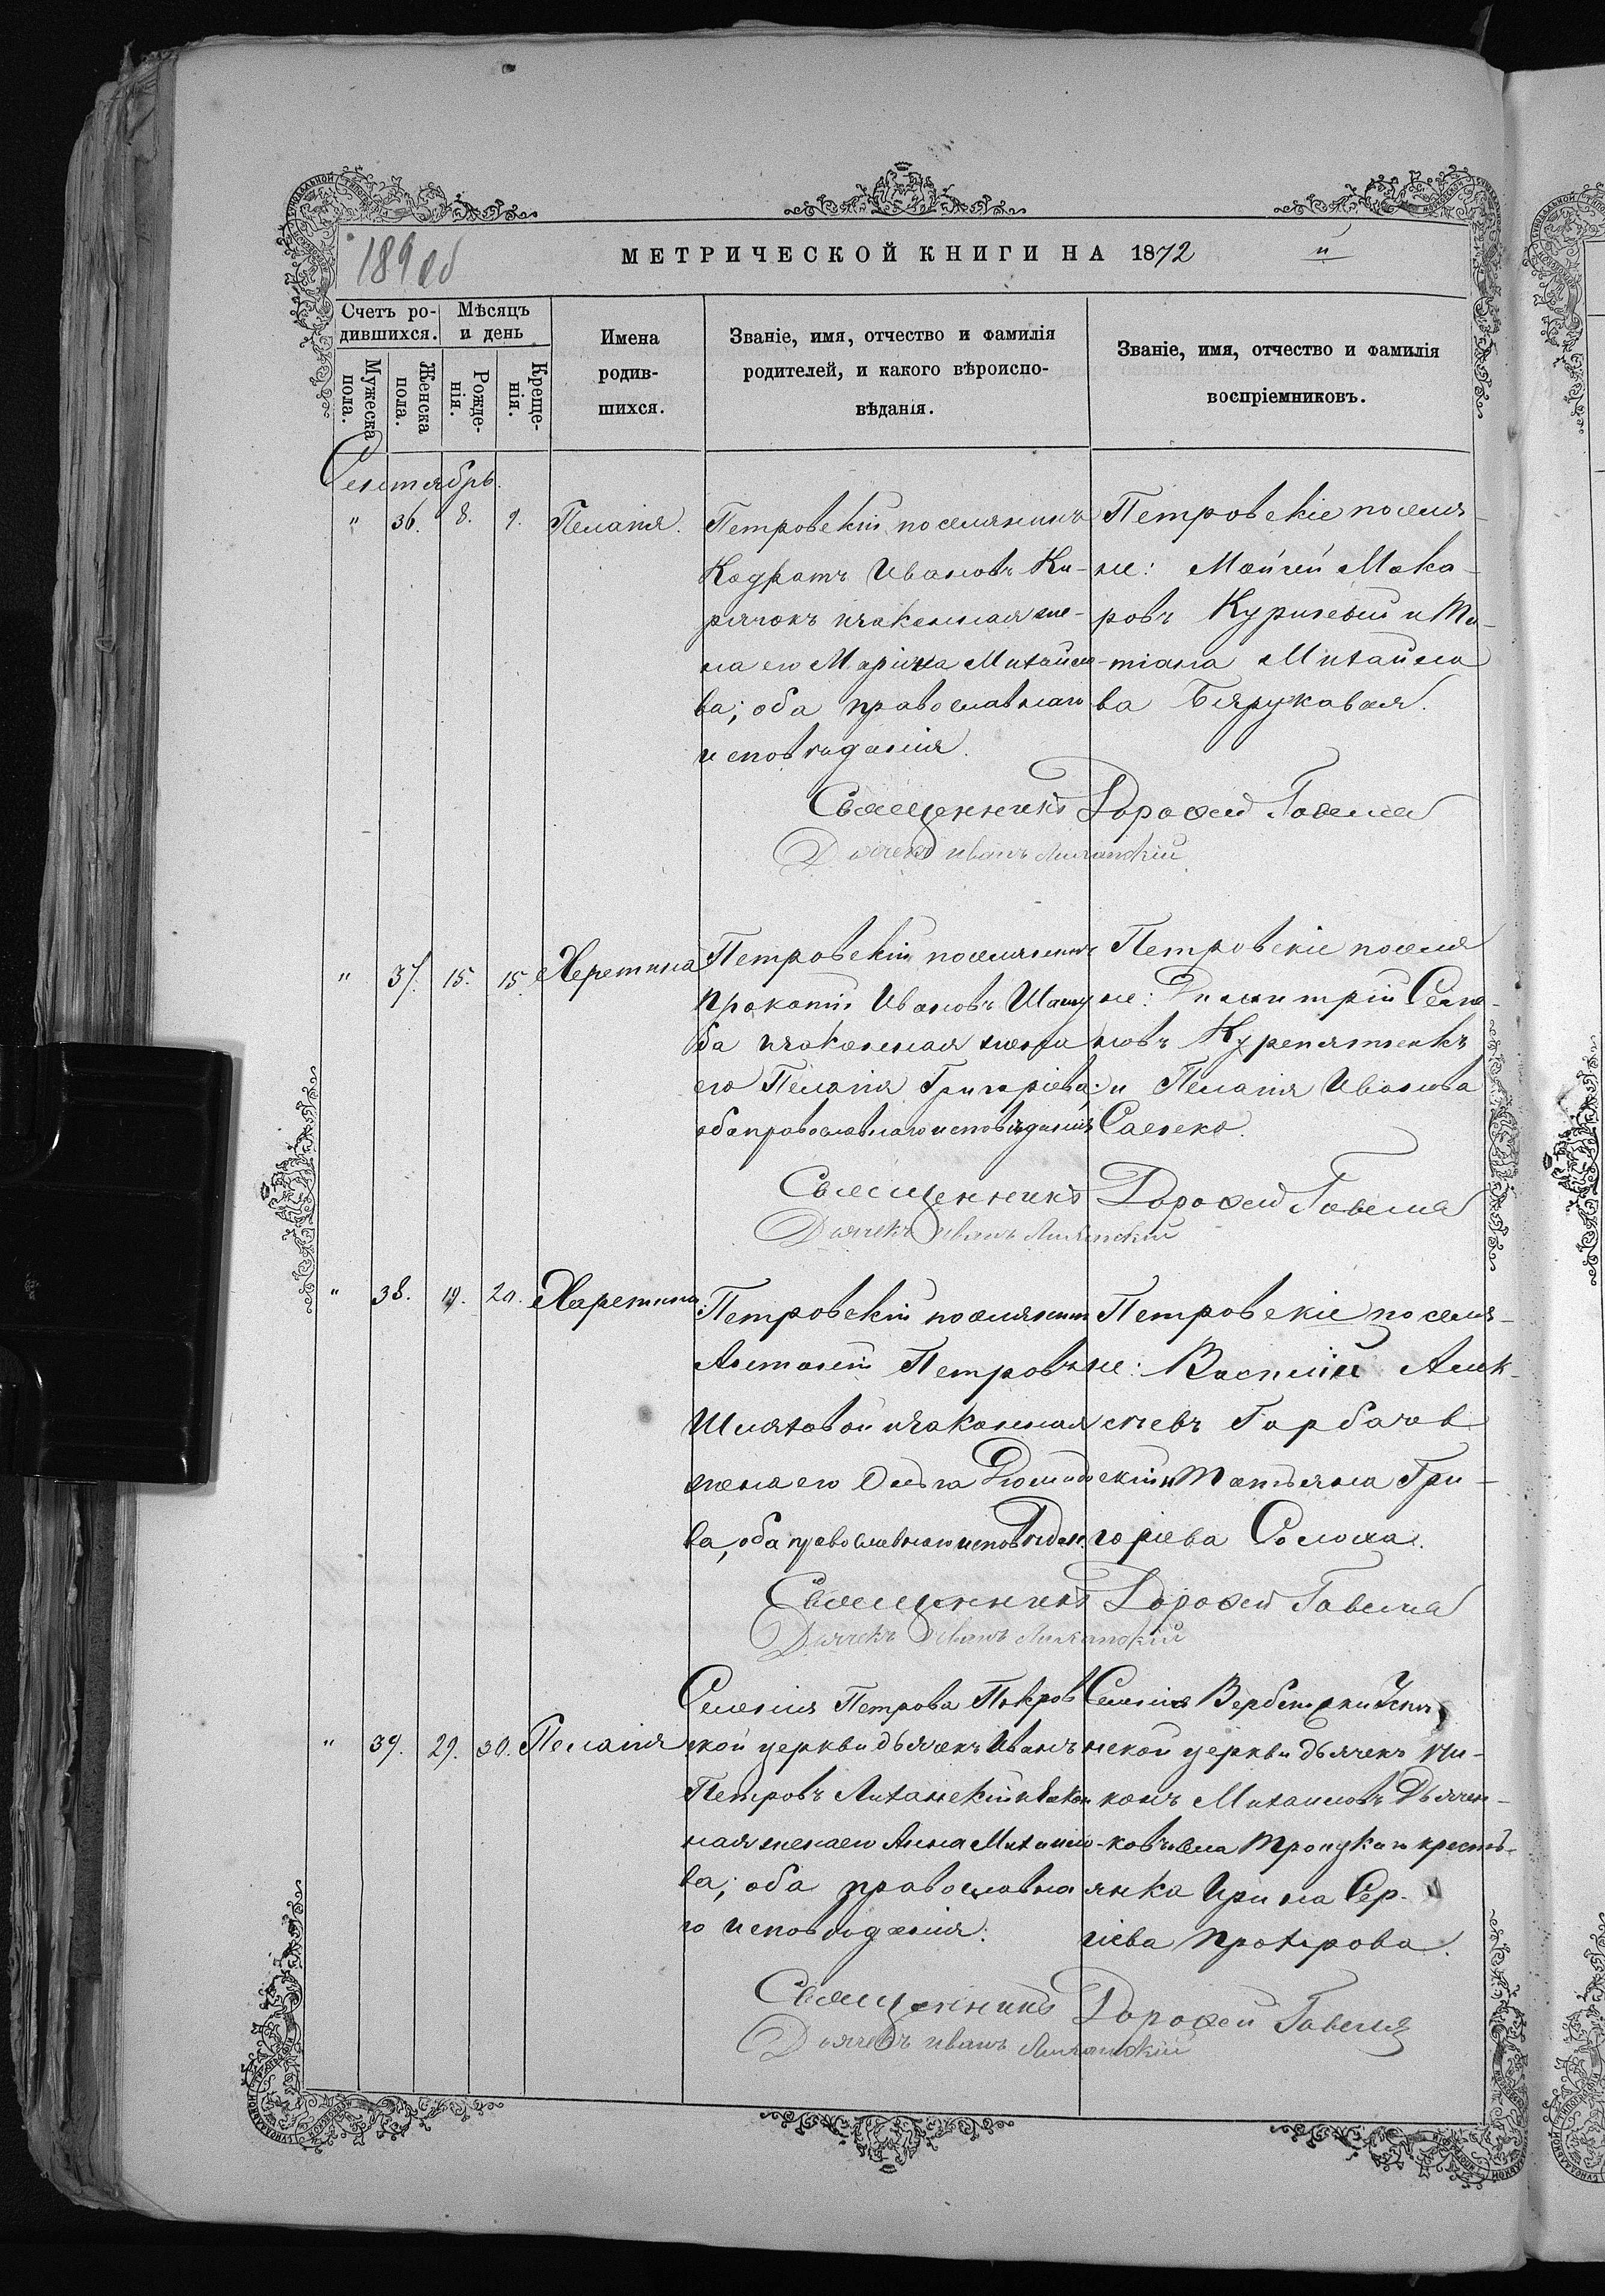 189 об
МЕТРИЧЕСКОЙ КНИГИ НА 1872
Счетъ ро-
дившихся.
Мѣсяцъ
и день
Мужеска
пола.
Женска
пола.
Рожде-
нія.
Креще-
нія.
Имена
родив-
шихся.
Званіе, имя, отчество и фамилія
родителей, и какого вѣроиспо-
вѣданія.
Званіе, имя, отчество и фамилія
воспріемниковъ.
Сентябрь.
" 36. 8. 9. Пелагія.
Петровскій поселянинъ
Кодратъ Ивановъ Ки-
рячокъ изаконная же-
на его Марина Михайло
ва; оба православнаго
исповѣданія.
Петровскіе поселя-
не: Мойсей Мака-
ровъ и Та-
тіана Михайло
ва Бярукавая.
Священникъ Дорофей Гавеля
Дьячекъ Иванъ Лиханскій
" 37. 15. 15. Харетина
Петровскій поселянинъ
Прокопій Ивановъ
ба изаконная жена
его Пелагія Григоріева;
оба православнаго исповѣданія
Петровскіе поселя
не: Димитрій Семе-
новъ
и Пелагія Иванова
Саенко.
Священникъ Дорофей Гавеля
Дьячекъ Иванъ Лиханскій
" 38. 19. 20. Харетина
Петровскій поселянинъ
Антоній Петровъ
Шляховой изаконная
жена его Ольга Діомидо
ва, оба православнаго исповѣдан.
Петровскіе поселя-
не: Василій Алек-
сѣевъ Горбачов
скій и Татьяна Гри-
горіева Солоха.
Священникъ Дорофей Гавеля
Дьячекъ Иванъ Лиханскій
" 39. 29. 30. Пелагія
Селенія Петрова Покров
ской церкви дьячекъ Иванъ
Петровъ Лиханскій изакон
ная жена его Анна Михайло
ва; оба православна
го исповѣданія.
Селенія
нской церкви дьячекъ Ни-
конъ Михаиловъ Дьячен-
ковъ села Троицкаго кресть-
янка Ирина Сер-
гіева Прохорова.
Священникъ Дорофей Гавеля
Дьячекъ Иванъ Лиханскій